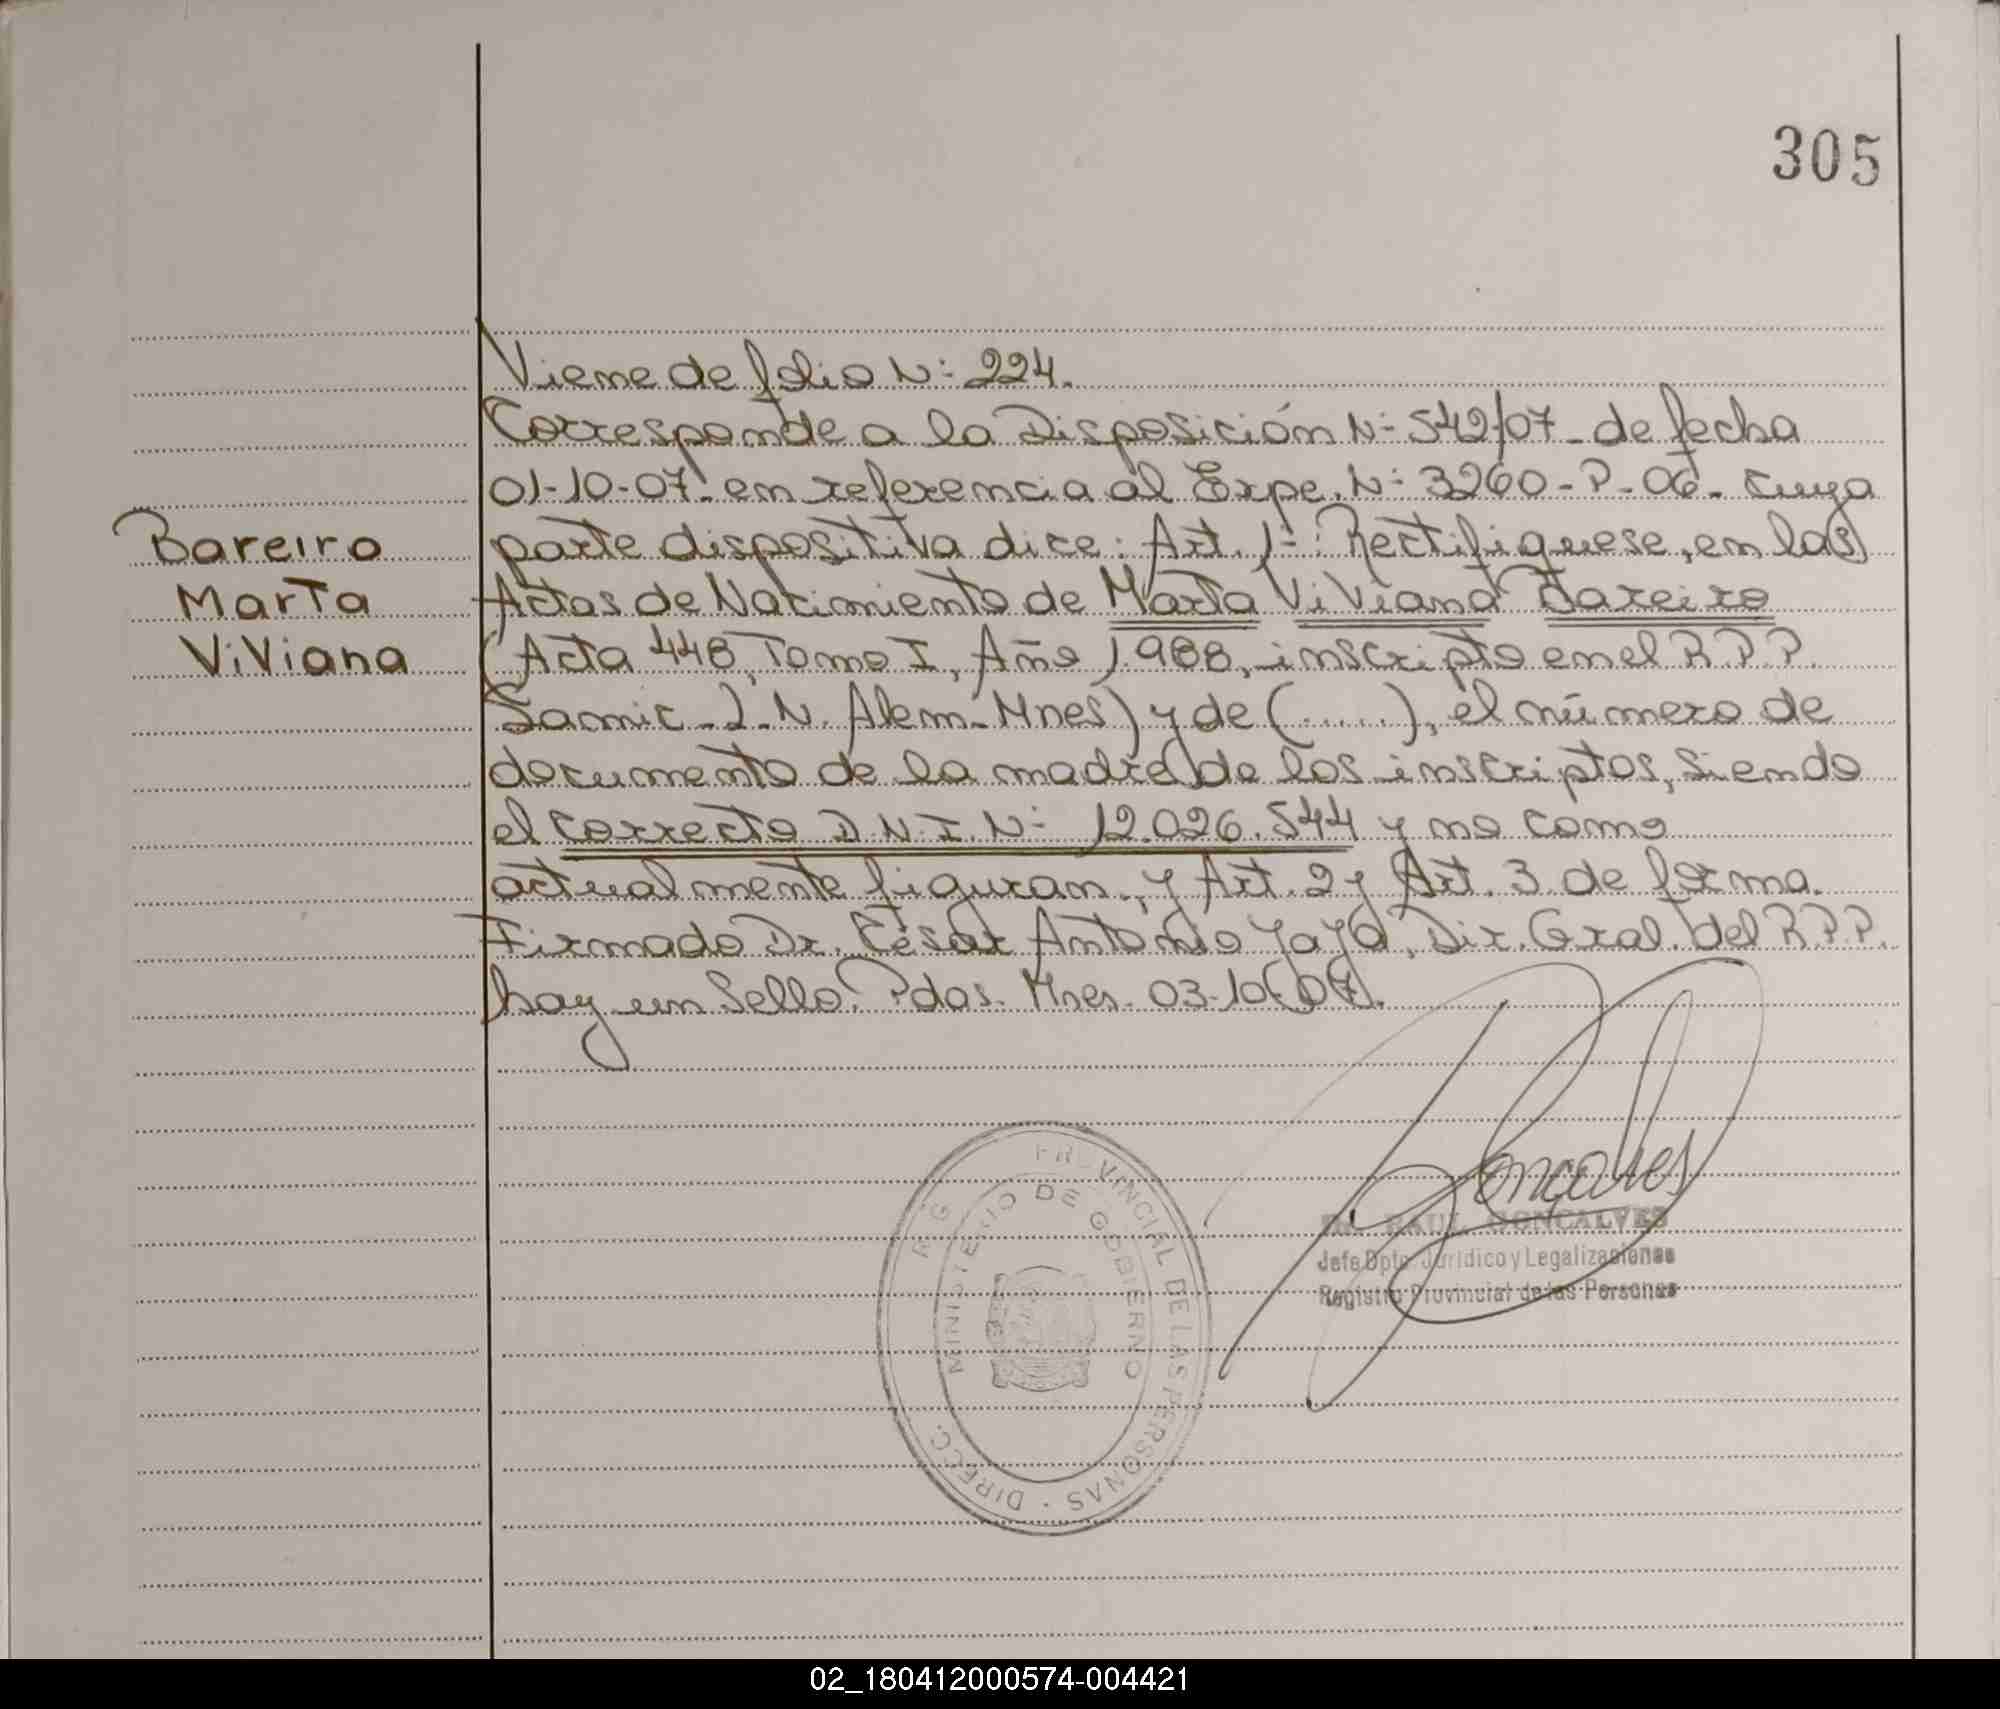 305
Viene de folio N: 224.
Corresponde a la Disposición N: 542/07 - de fecha
01-10-07. en referencia al Expe. N: 3260-P-06. cuya
Bareiro
parte dispositiva dice: Art. 1-: Rectifiquese, en la(s)
Marta
Actas de Nacimiento de Marta Viviana Bareiro
Viviana
(Acta 448, Tomo I, Año 1.988, inscripto en el R.P.P.
Samic - L. N. Alem - Mnes) y de (.....), el número de
documento de la madre de los inscriptos, siendo
el correcto D.N.I. N: 12.026.544 y no como
actualmente figuran., y Art. 2 y Art. 3 de forma.
Firmado Dr. César Antonio Yaya, Dir. Gral. del R.P.P.
hay un Sello. Pdas. Mnes. 03-10-(07).
Goncalves
RAUL GONCALVES
Jefe Dpto. Jurídico y Legalizaciones
Registro Provincial de las Personas
DIRECC. REG PROVINCIAL DE LAS PERSONAS
MINISTERIO DE GOBIERNO
02_180412000574-004421